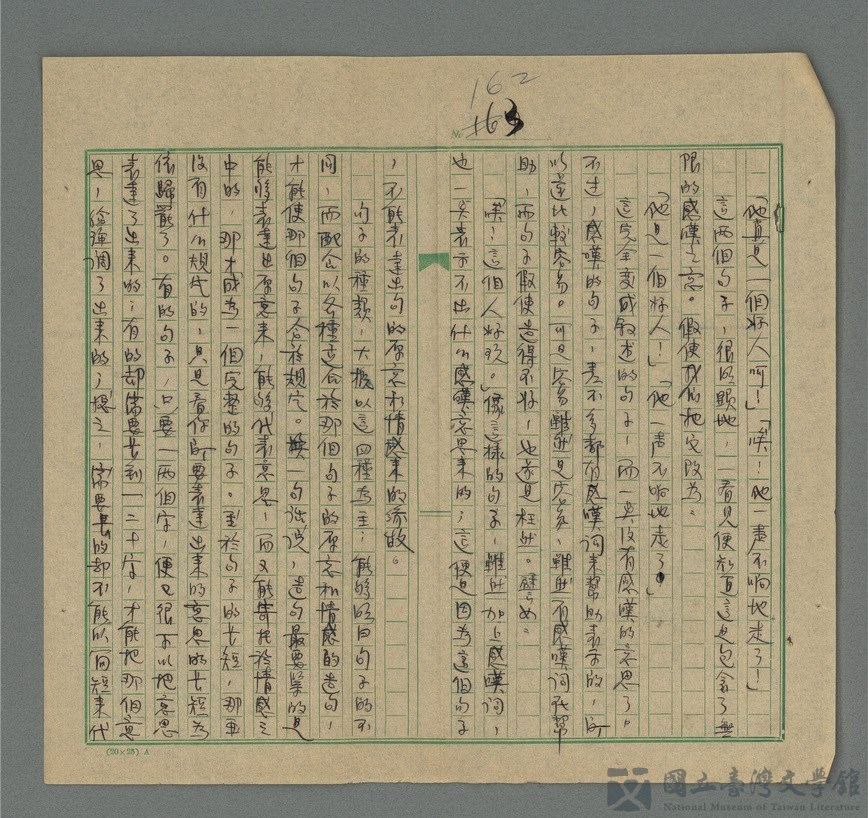 162
163
No
「他真是一個好人呵！」「唉！他一声不响地走了！」
這两個句子，很明顯地，一看見便知道這是包含了無
限的感嘆之意。假使我们把它改為：
「他是一個好人！」「他一声不响地走了。」
這完全变成敍述的句子，而一点没有感嘆的意思了。
不过，感嘆的句子，差不多都有感嘆词来幫助表示的，所
以造比較容易。可是容易雖然是容易，雖然有感嘆词來幫
助，而句子假使造得不好，也还是枉然。譬如：
「唉！這個人好玩。」像這樣的句子，雖然加上感嘆词，
也一点表示不出什么感嘆意思来的，這便是因為這個句子
，不能表達出句的原意和情感来的缘故。
句子的種類，大概以這四種為主，能够明白句子的不
同，而配合以各種適合於那個句子的原意和情感的造句，
才能使那個句子合於规定。换一句話說，造句最要紧的是
能够表達出原意来，能够代表意思，而又能寄托於情感之
中的，那才成為一個完整的句子。至於句子的长短，那並
没有什么规定的，只是看你所要表達出来的意思的长短為
依歸罷了。有的句子，只要一两個字，便已很可以把意思
表達了出来的；有的却需要长到一二十字，才能把那個意
思，给强調了出来的；總之，需要長的却不能以简短来代
(20×25) A
國立臺灣文學館
National Museum of Taiwan Literature